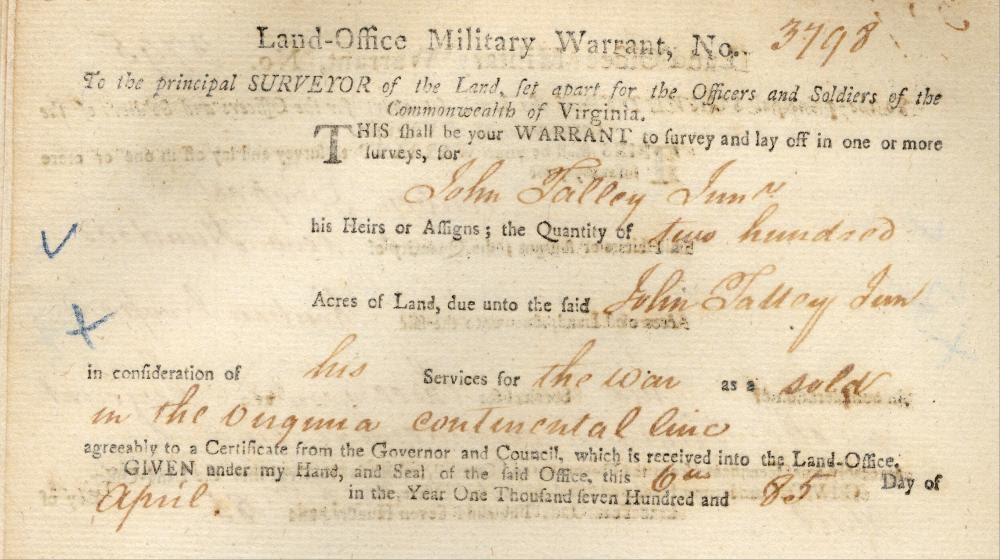 Land-Office Military Warrant, No. 3798
To the principal SURVEYOR of the Land, ſet apart for the Officers and Soldiers of the
Commonwealth of Virginia.
THIS ſhall be your WARRANT to ſurvey and lay off in one or more
ſurveys, for
John Talley Junr
his Heirs or Aſſigns; the Quantity of two hundred
Acres of Land, due unto the ſaid John Talley Jun
in conſideration of his Services for the war as a sold
in the virginia continental line
agreeably to a Certificate from the Governor and Council, which is received into the Land-Office.
GIVEN under my Hand, and Seal of the ſaid Office, this 6th Day of
April. in the Year One Thouſand ſeven Hundred and 85